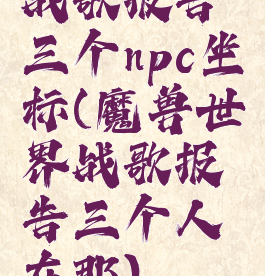 战歌报告
三个npc坐
标(魔兽世
界战歌报
告三个人
在那)